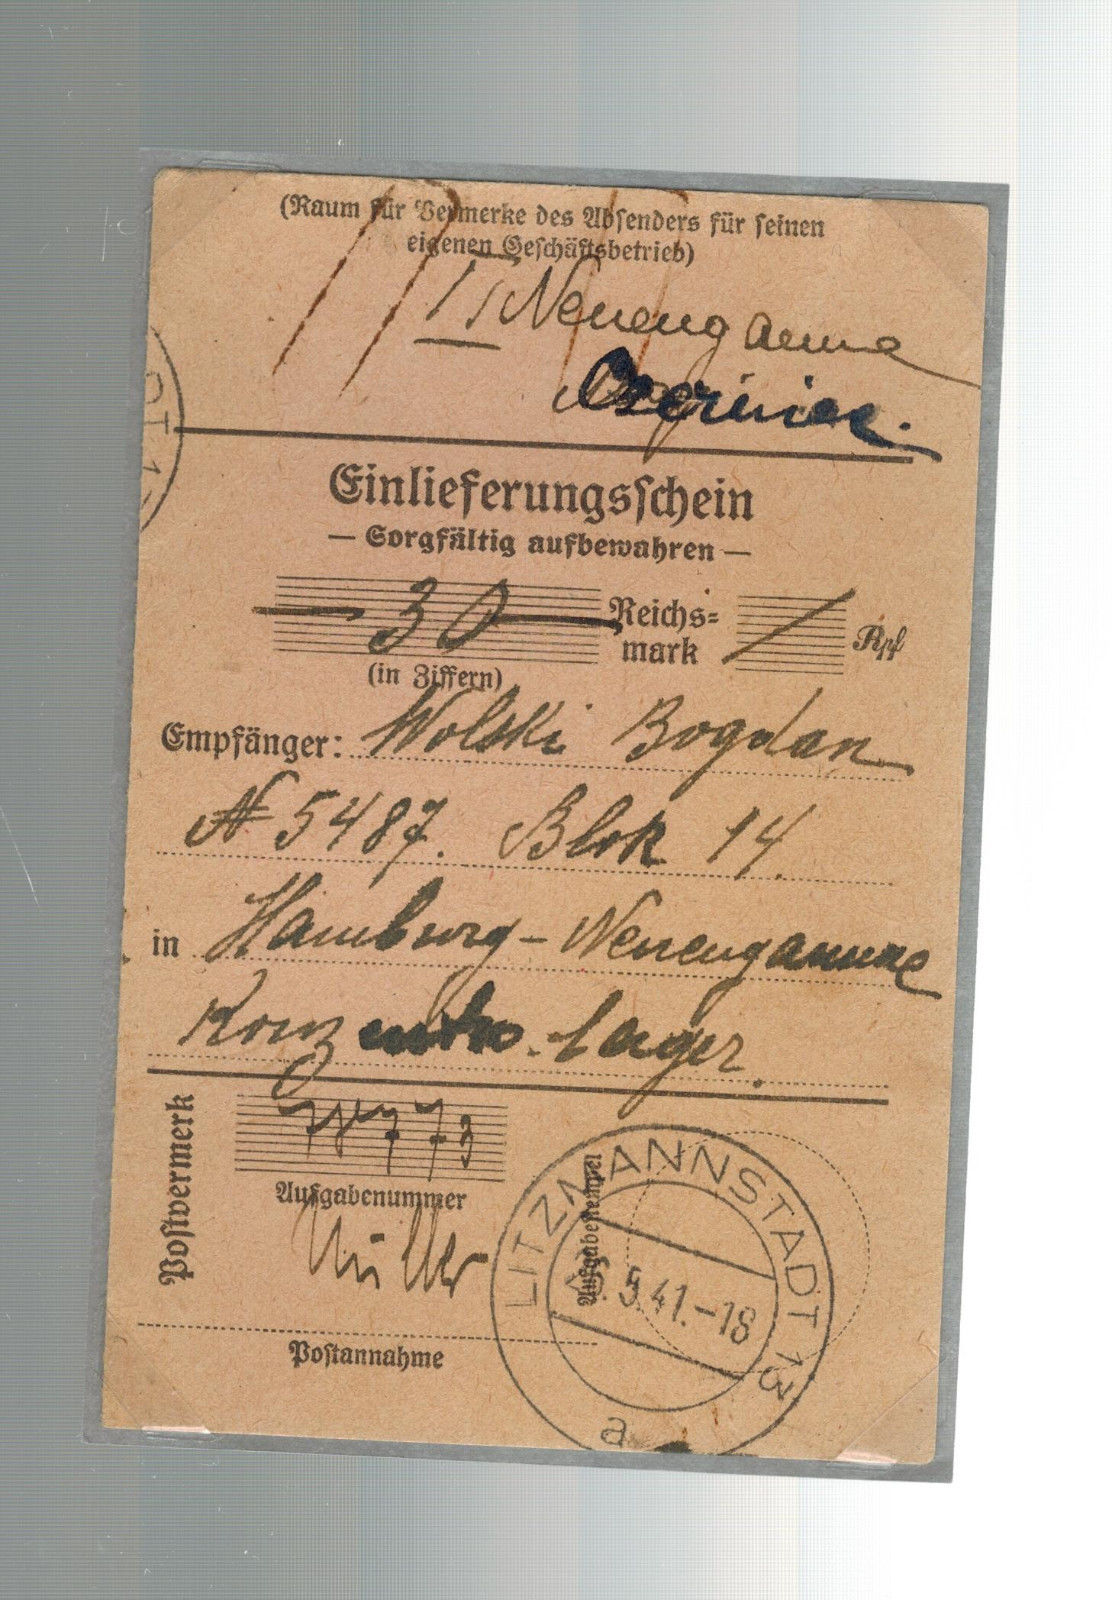 (Raum für Vermerke des Absenders für seinen
eigenen Geschäftsbetrieb)
Neuengamme
Czerwiec.
Einlieferungsschein
— Sorgfältig aufbewahren —
— 30 — Reichs=
mark / Rpf
(in Ziffern)
Empfänger: Wolski Bogdan
N 5487. Blok 14.
in Hamburg-Neuengamme
Konzentro.-lager.
Postvermerk
773
Aufgabenummer
Müller
Postannahme
Aufgabestempel
LITZMANNSTADT 13
5.41.-18
a